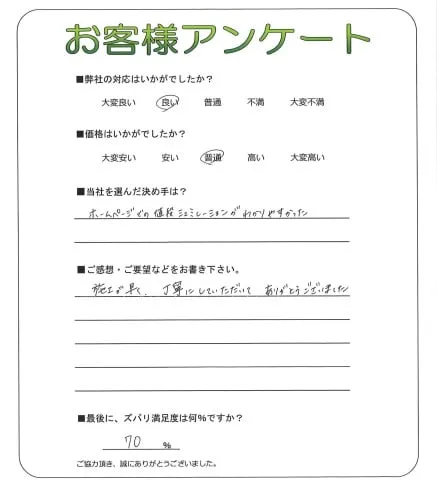 お客様アンケート
■弊社の対応はいかがでしたか？
大変良い 良い 普通 不満 大変不満
■価格はいかがでしたか？
大変安い 安い 普通 高い 大変高い
■当社を選んだ決め手は？
ホームページでの値段シュミレーションがわかりやすかった
■ご感想・ご要望などをお書き下さい。
施工が早く、丁寧にしていただいて ありがとうございました
■最後に、ズバリ満足度は何%ですか？
70 %
ご協力頂き、誠にありがとうございました。